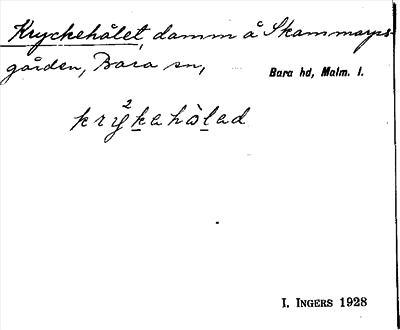 Kryckehålet, damm å Skammarps-
gården, Bara sn,
Bara hd, Malm. l.
kry̆²kahòlad
I. INGERS 1928